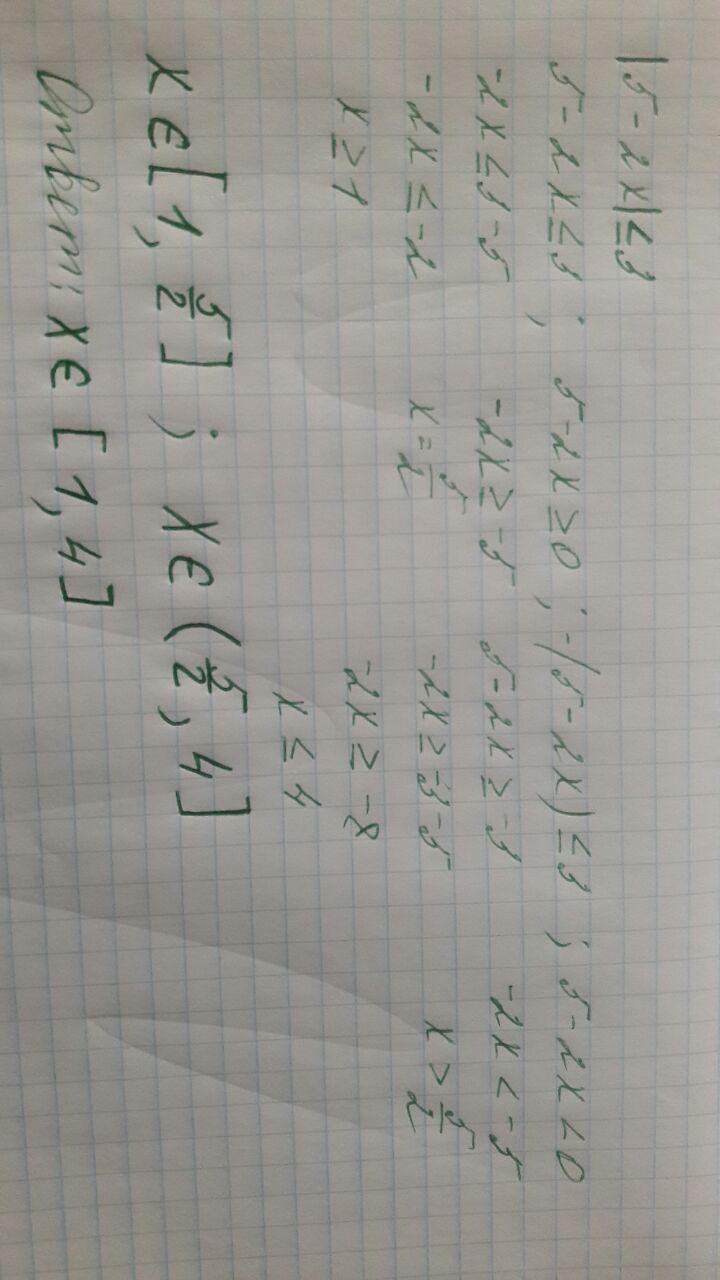 |5 - 2x| ≤ 3
5 - 2x ≤ 3 ; 5 - 2x ≥ 0 ; -(5 - 2x) ≤ 3 ; 5 - 2x < 0
-2x ≤ 3 - 5 -2x ≥ -5 5 - 2x ≥ -3 -2x < -5
-2x ≤ -2 x = 5/2 -2x ≥ -3 - 5 x > 5/2
x ≥ 1 -2x ≥ -8
x ≤ 4
x ∈ [1, 5/2] ; x ∈ (5/2, 4]
Ответ: x ∈ [1, 4]